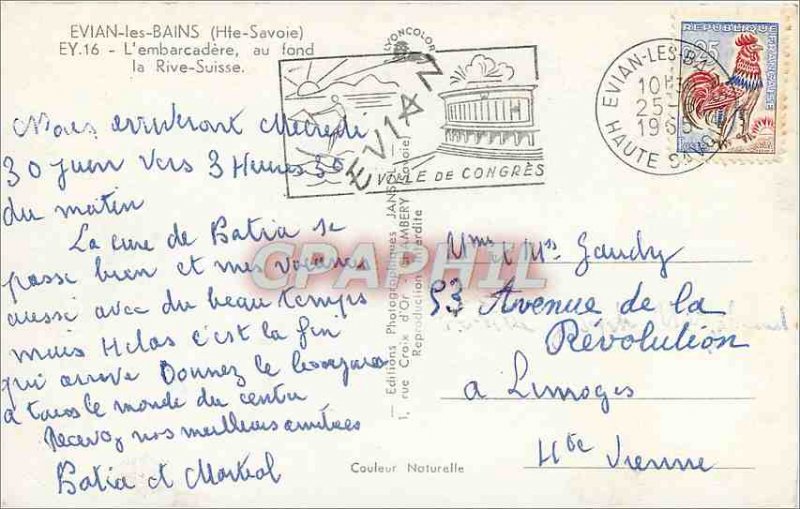 EVIAN-les-BAINS (Hte-Savoie)
EY.16 - L'embarcadère, au fond
la Rive-Suisse.
LYONCOLOR
EVIAN
VILLE DE CONGRÈS
EVIAN-LES-B
10
25
1965
HAUTE SAVOIE
REPUBLIQUE FRANÇAISE
Nous arriveront Mecredi
30 juin vers 3 Heures 30
du matin
La cure de Batia se
passe bien et mes vacances
aussi avec du beau temps
mais Helas c'est la fin
qui arrive Donnez le
a tous le monde du centre
Recevez nos meilleurs amitiées
Batia et Martial
Editions Photographiques JANSOL
1, rue Croix d'Or CHAMBERY (Savoie)
Reproduction Interdite
CPAPHIL
Mme et Mrs Gaudry
53 Avenue de la
Révolution
a Limoges
Hte Vienne
Couleur Naturelle